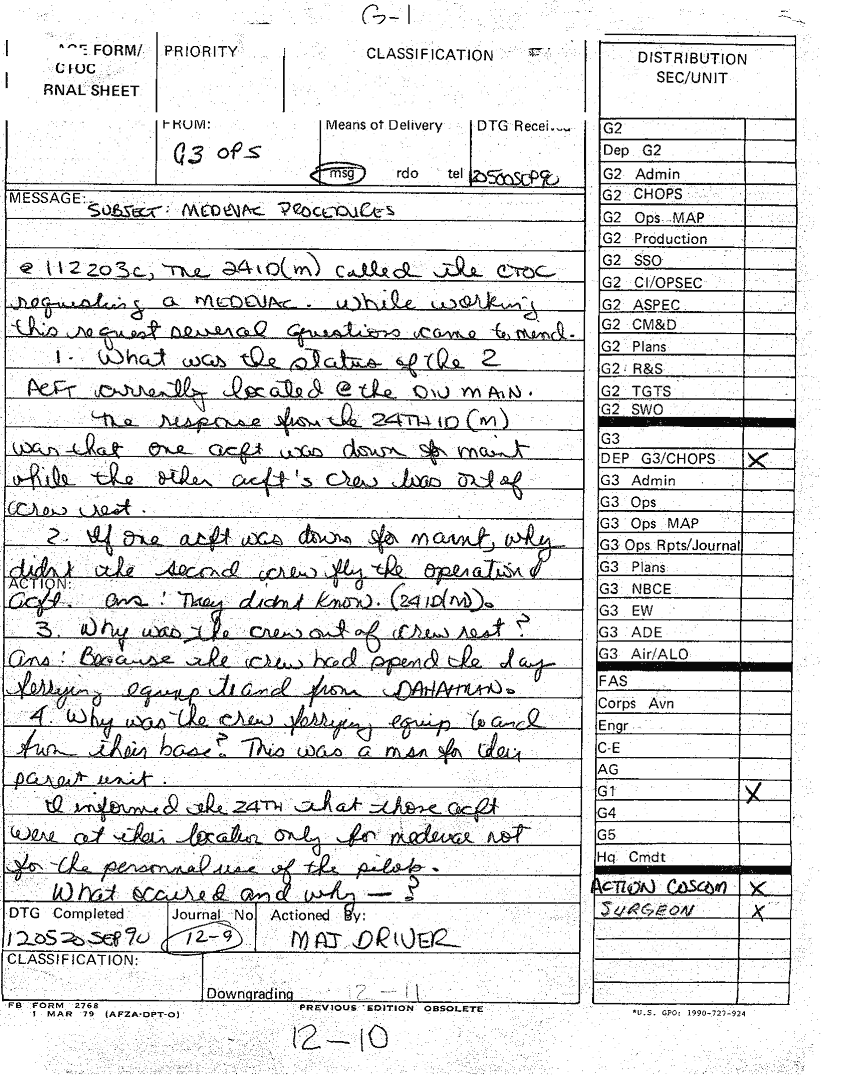 G-1
FORM/
CTOC
RNAL SHEET
PRIORITY
CLASSIFICATION
FROM:
G3 OPS
Means of Delivery
msg rdo tel
DTG Received
120500SEP90
MESSAGE:
SUBJECT: MEDEVAC PROCEDURES
@ 112203C, the 24ID(M) called the CTOC
requesting a MEDEVAC. While working
this request several questions came to mind.
1. What was the status of the 2
ACFT currently located @ the DIV MAIN.
The response from the 24TH ID (M)
was that one acft was down for maint
while the other acft's crew was out of
crew rest.
2. If one acft was down for maint, why
didnt the second crew fly the operational
ACTION:
acft. Ans: They didnt know. (24ID(M)).
3. Why was the crew out of crew rest?
Ans: Because the crew had spend the day
ferrying equip to and from DAHAHRAN.
4. Why was the crew ferrying equip to and
from their base? This was a msn for their
parent unit.
I informed the 24TH that those acft
were at their location only for medevac not
for the personnal use of the pilots.
What occured and why — ?
DTG Completed
120520SEP90
Journal No
12-9
Actioned By:
MAJ DRIVER
CLASSIFICATION:
Downgrading
12-11
FB FORM 2768
1 MAR 79 (AFZA-DPT-O)
PREVIOUS EDITION OBSOLETE
12-10
DISTRIBUTION
SEC/UNIT
G2
Dep G2
G2 Admin
G2 CHOPS
G2 Ops MAP
G2 Production
G2 SSO
G2 CI/OPSEC
G2 ASPEC
G2 CM&D
G2 Plans
G2 R&S
G2 TGTS
G2 SWO
G3
DEP G3/CHOPS X
G3 Admin
G3 Ops
G3 Ops MAP
G3 Ops Rpts/Journal
G3 Plans
G3 NBCE
G3 EW
G3 ADE
G3 Air/ALO
FAS
Corps Avn
Engr
C-E
AG
G1 X
G4
G5
Hq Cmdt
ACTION COSCOM X
SURGEON X
*U.S. GPO: 1990-727-924